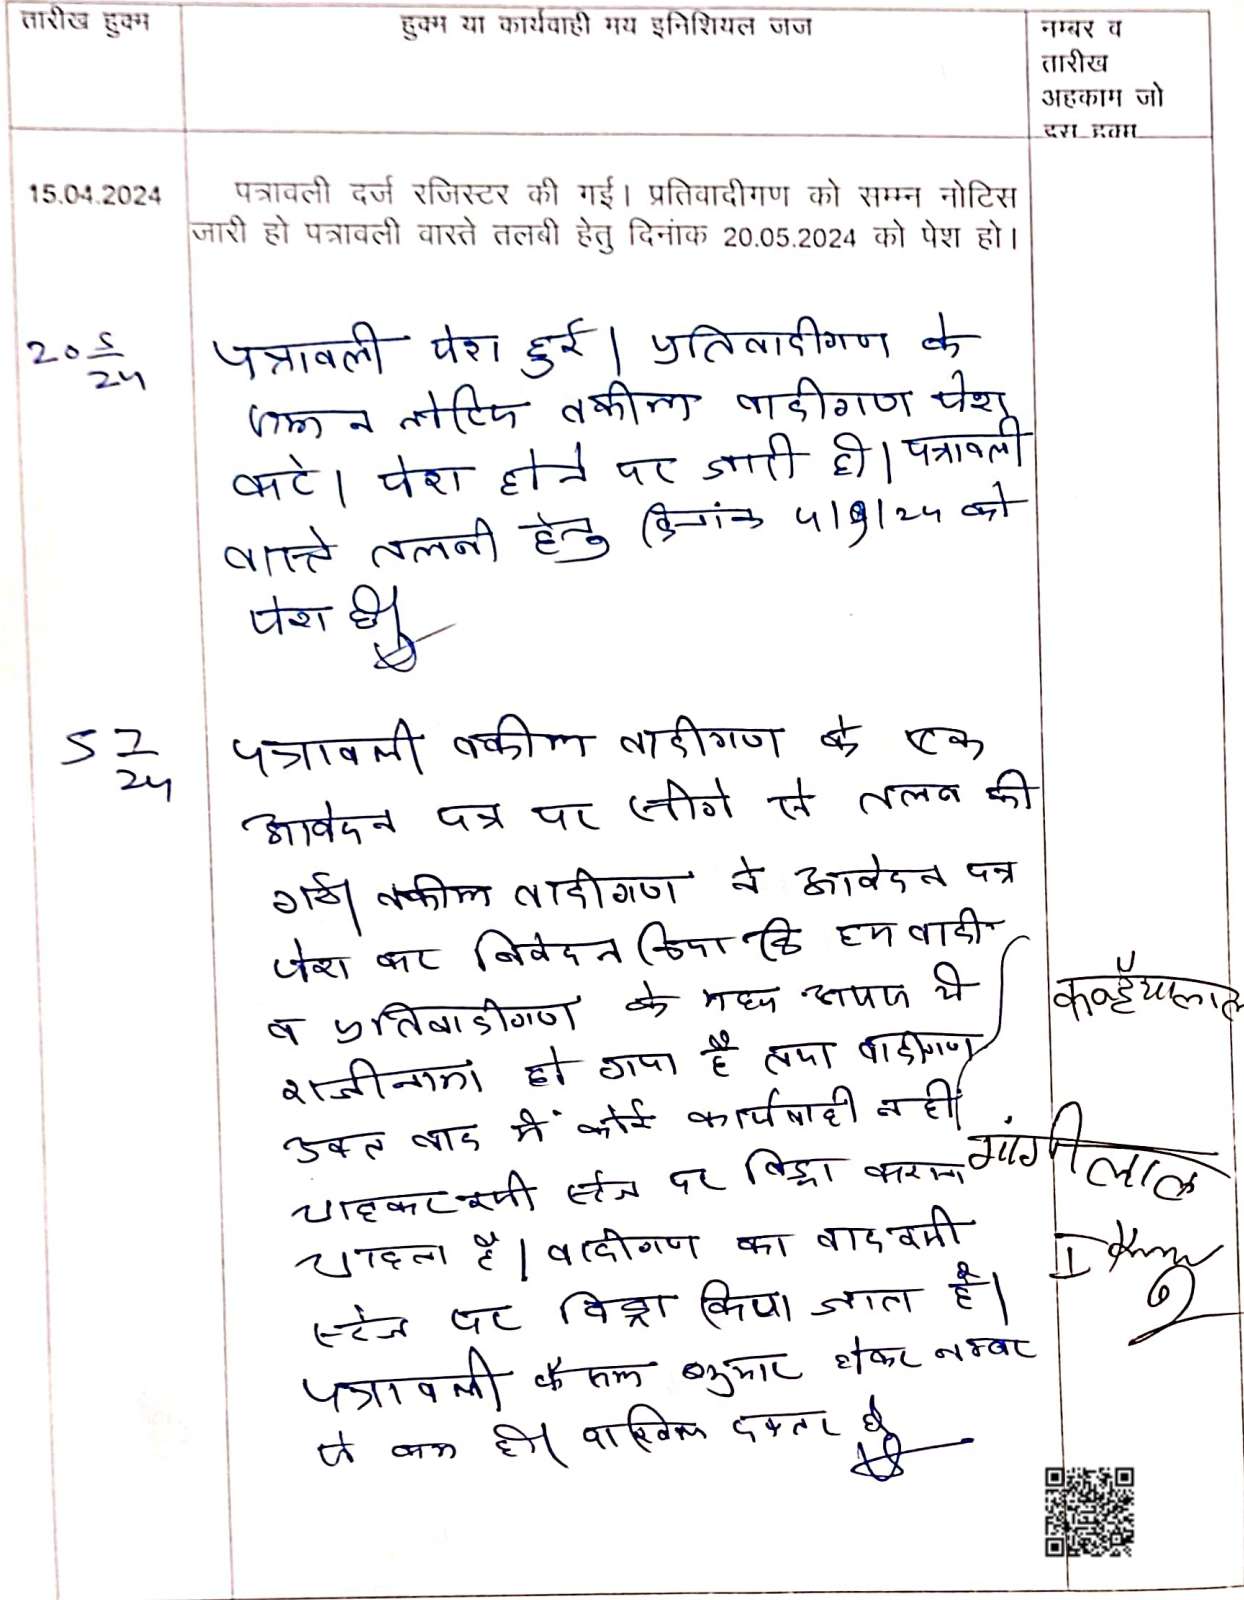 तारीख हुक्म
हुक्म या कार्यवाही मय इनिशियल जज
नम्बर व
तारीख
अहकाम जो
इस हुक्म
15.04.2024
पत्रावली दर्ज रजिस्टर की गई। प्रतिवादीगण को सम्म्न नोटिस
जारी हो पत्रावली वास्ते तलबी हेतु दिनांक 20.05.2024 को पेश हो।
20 5/24
पत्रावली पेश हुई। प्रतिवादीगण के
सम्मन नोटिस वकील वादीगण पेश
करे। पेश होने पर जारी हो। पत्रावली
वास्ते तलबी हेतु दिनांक 4/9/24 को
पेश हो।
5 7/24
पत्रावली वकील वादीगण के एक
आवेदन पत्र पर सीगे से तलब की
गई। वकील वादीगण ने आवेदन पत्र
पेश कर निवेदन किया कि हम वादी
व प्रतिवादीगण के मध्य आपस में
राजीनामा हो गया है तथा वादीगण
उक्त वाद में कोई कार्यवाही नहीं
चाहकर इसी स्टेज पर विड्रा करना
चाहता है। वादीगण का वाद इसी
स्टेज पर विड्रा किया जाता है।
पत्रावली फैसल शुमार होकर नम्बर
से कम हो। दाखिल दफ्तर हो
कन्हैयालाल
मांगीलाल
I